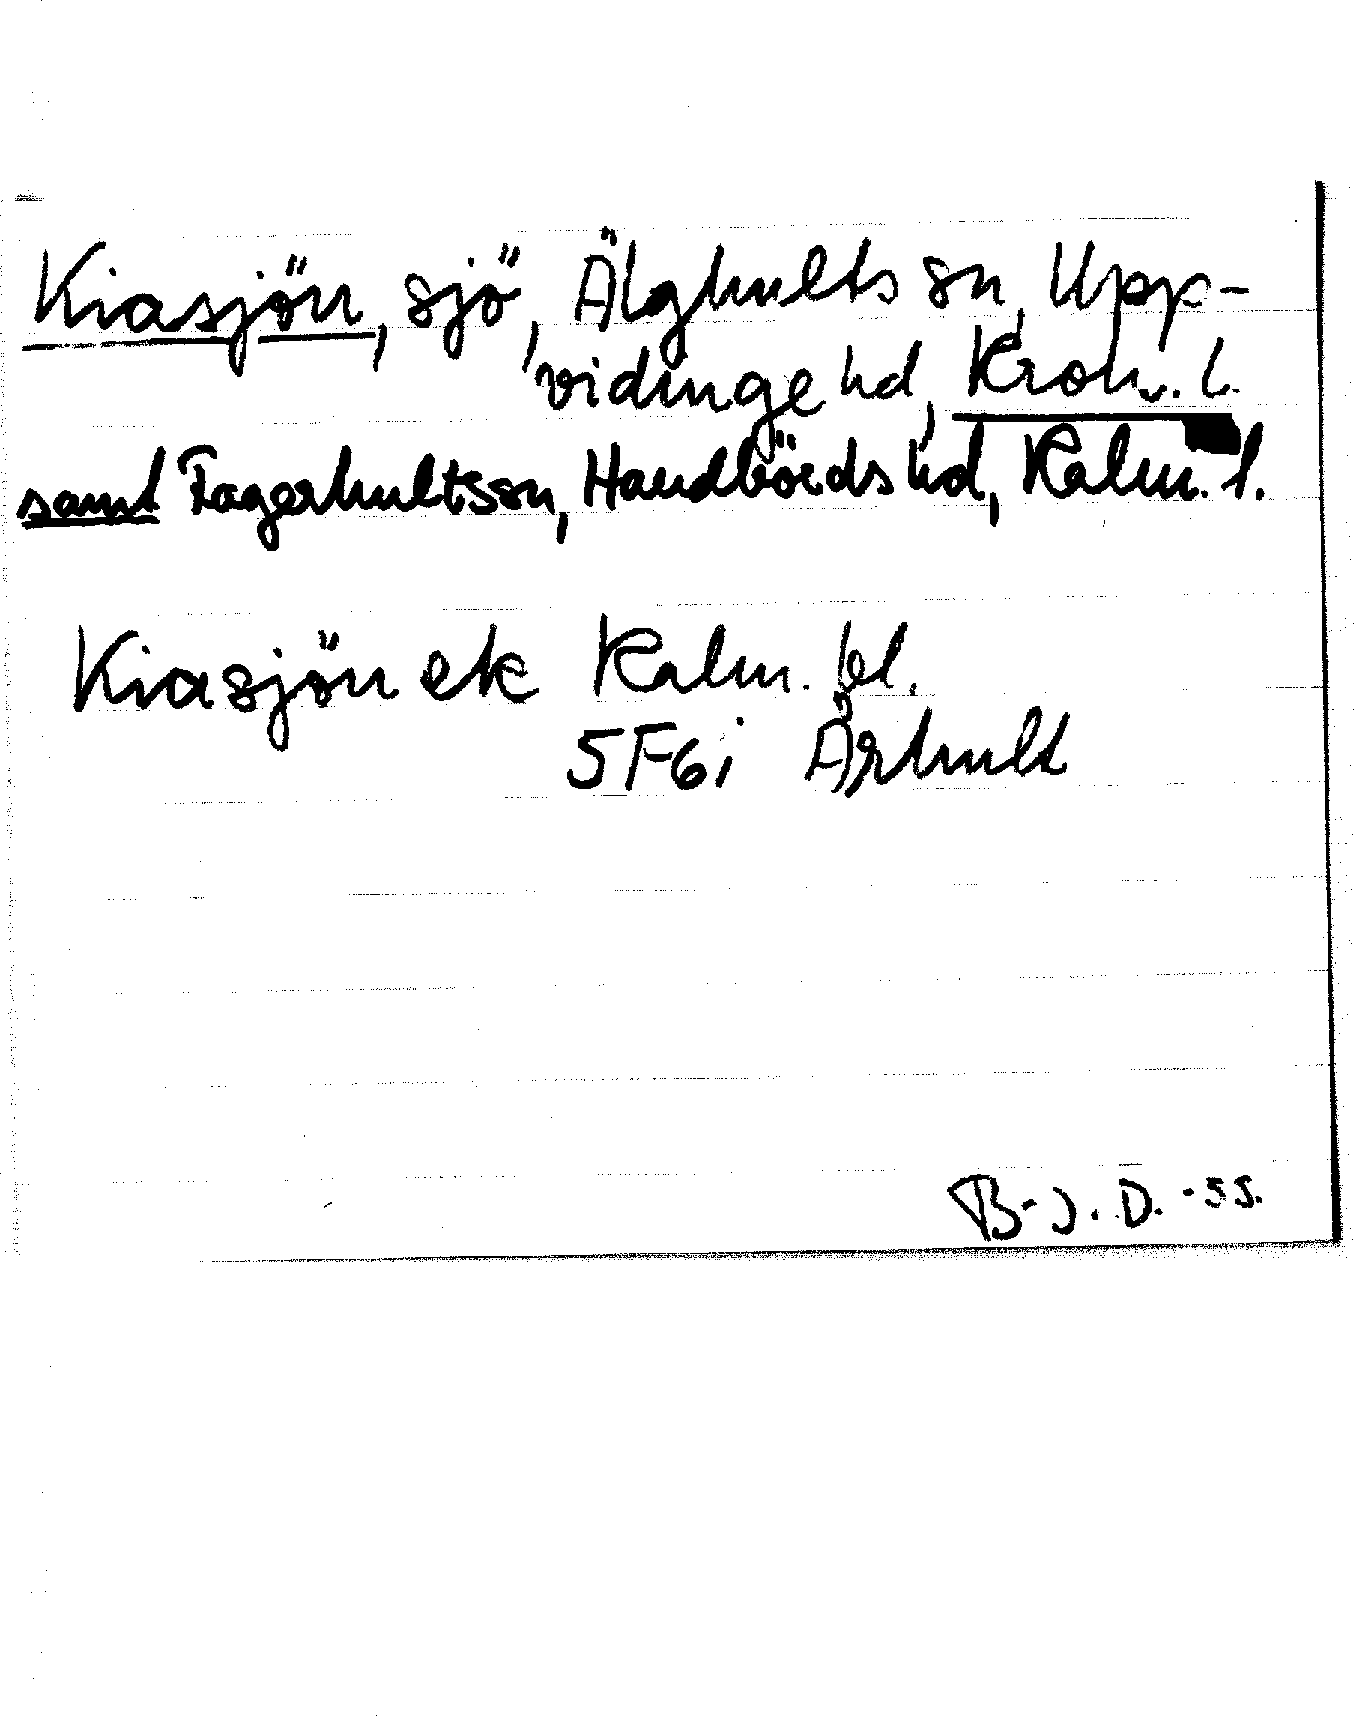 Kiasjön, sjö, Älghults sn, Upp-
vidinge hd, Kron. l.
samt Fagerhults sn, Handbörds hd, Kalm. l.
Kiasjön ek Kalm. bl.
5F6i Århult
B-J. D. -55.